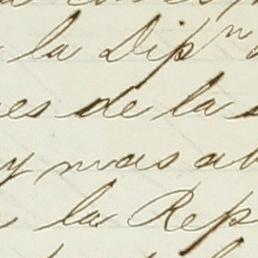 la Dipn
es de la
y mas ab
la Rep